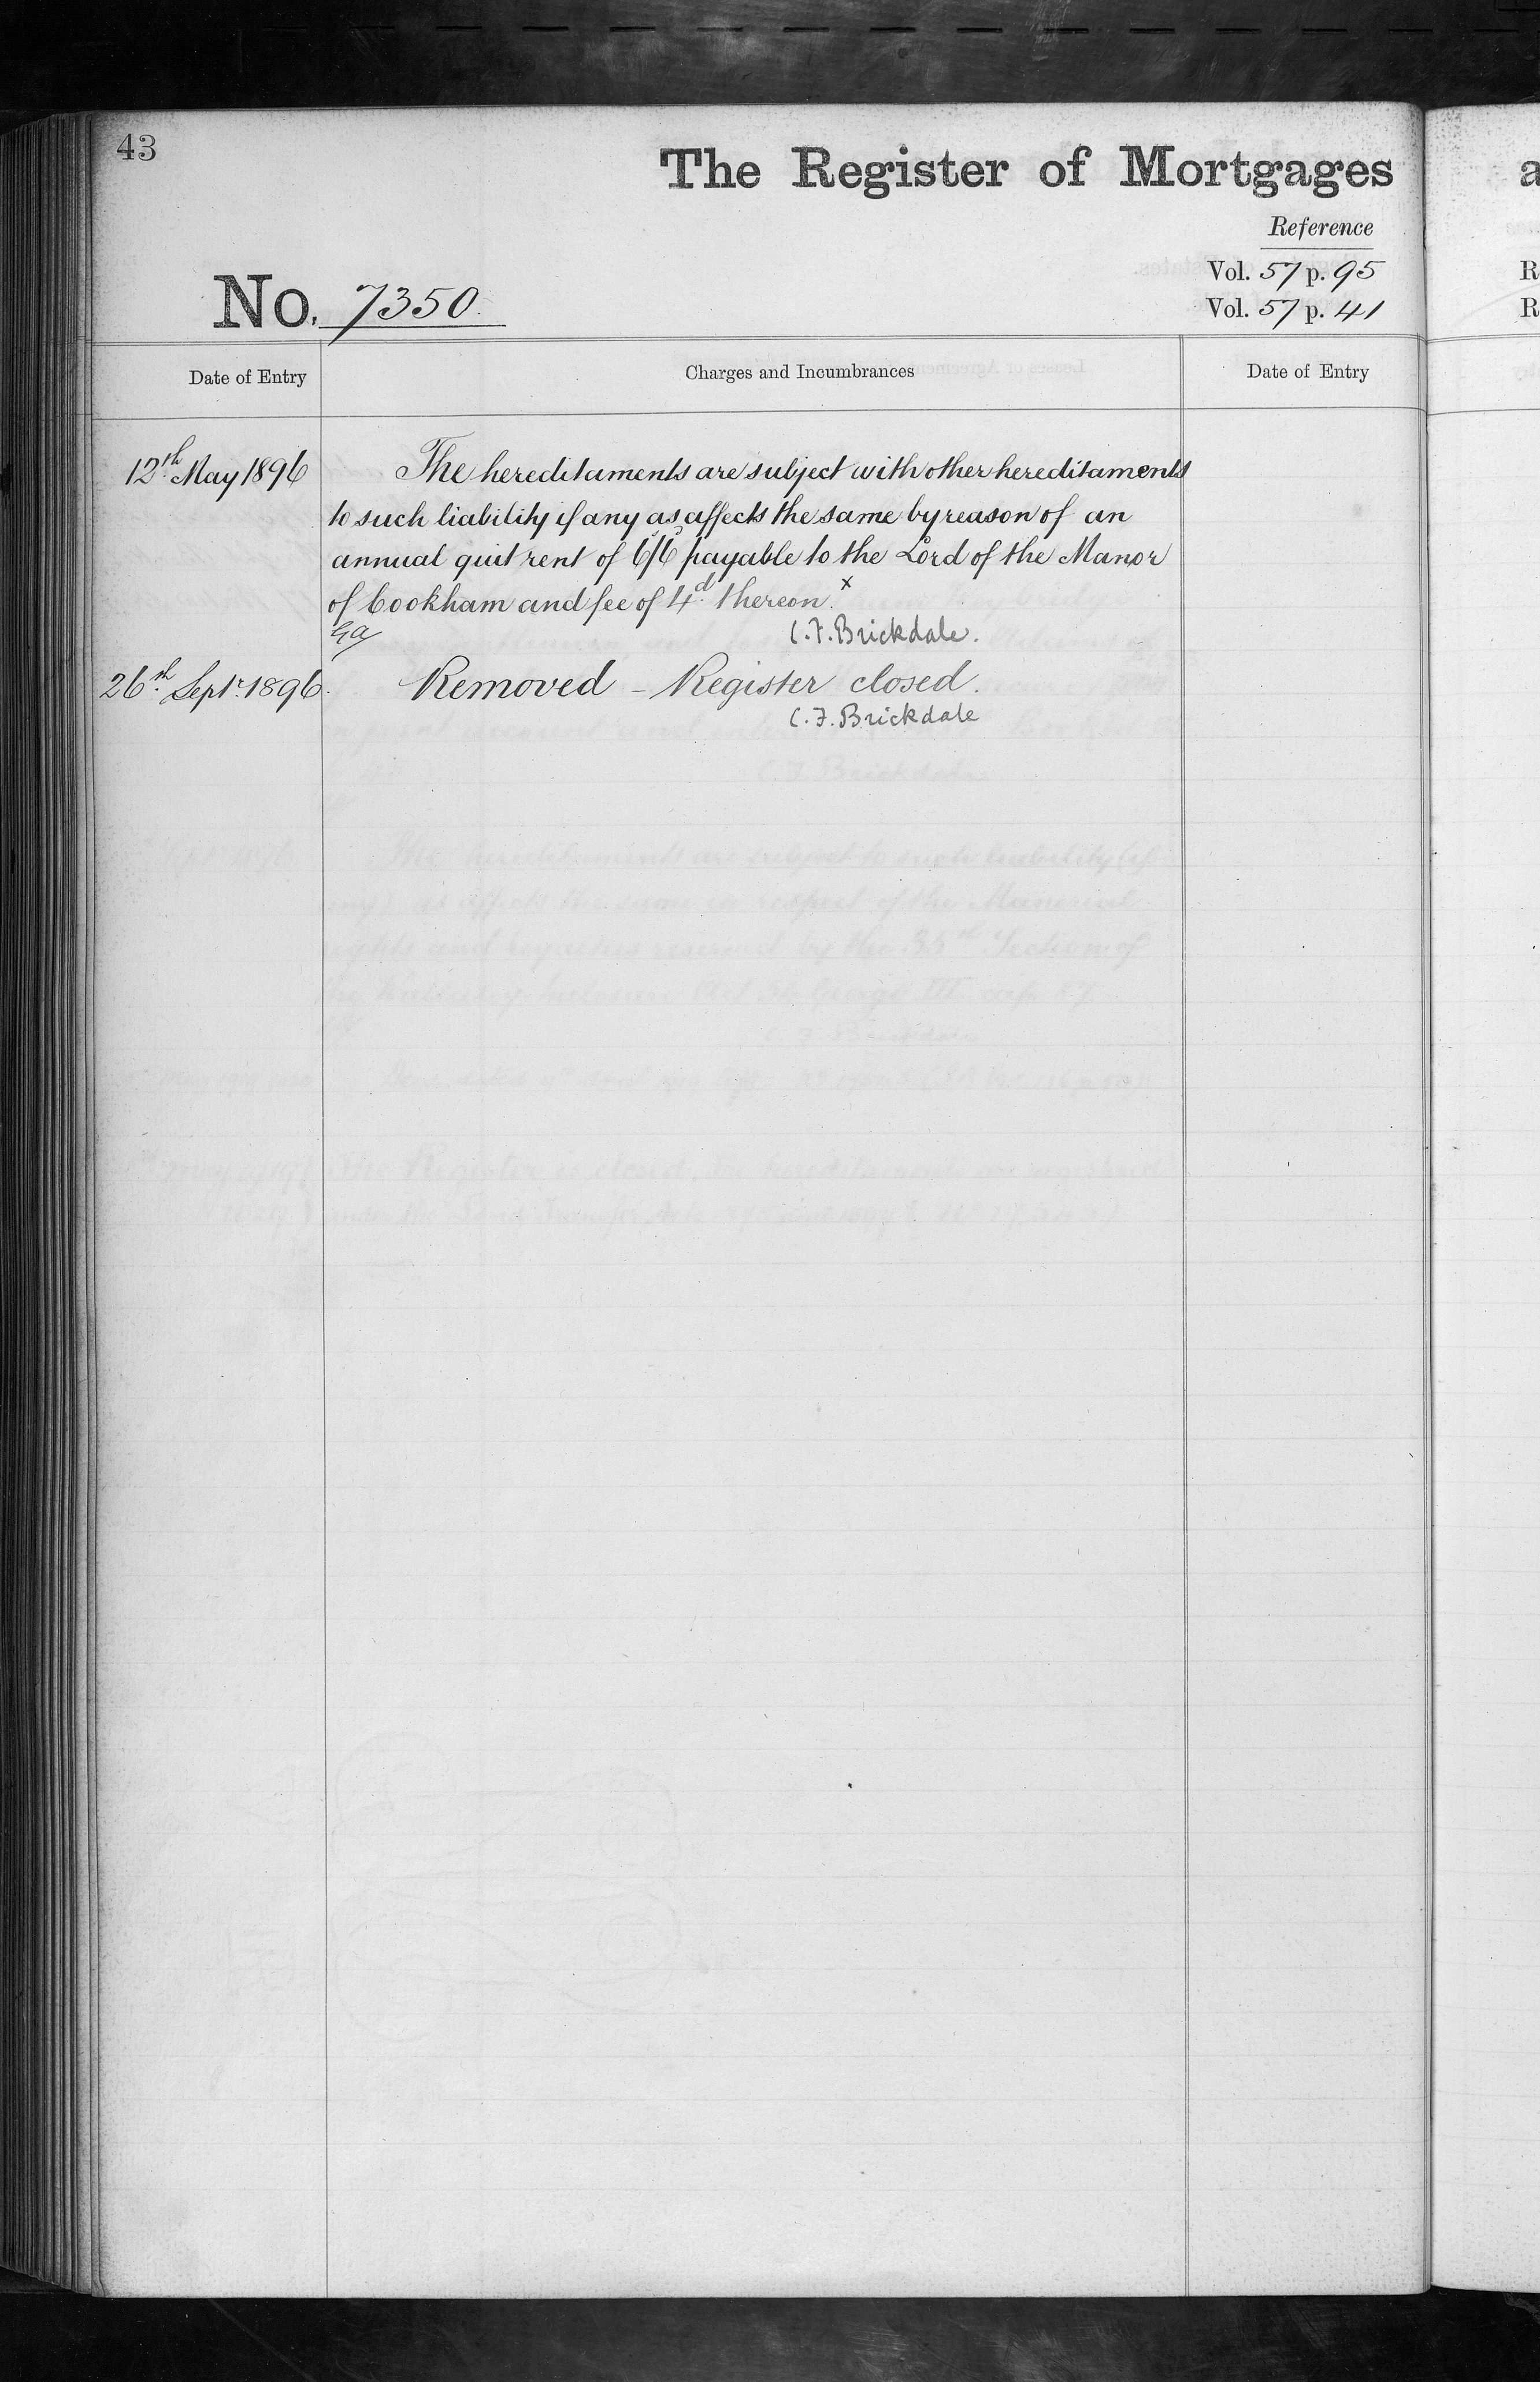 43
The Register of Mortgages
Reference
Vol. 57 p. 95
No. 7350.
Vol. 57 p. 41
Date of Entry
Charges and Incumbrances
Date of Entry
12th May 1896
The hereditaments are subject with other hereditaments
to such liability if any as affects the same by reason of an
annual quit rent of 6/6 payable to the Lord of the Manor
of Cookham and fee of 4d thereon. x
C.F. Brickdale.
26th Septr. 1896.
Removed – Register closed.
C.F. Brickdale
a
R
R